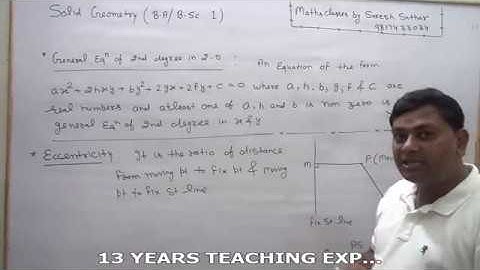 Solid Geometry (B.A/B.Sc 1)
Maths classes by Suresh Suthar
* General Eqn of 2nd degree in 2-D : An Equation of the form
ax² + 2hxy + by² + 2gx + 2fy + c = 0 where a, h, b, g, f & c are
real numbers and atleast one of a, h and b is non zero is
general Eqn of 2nd degree in x & y
* Eccentricity It is the ratio of distance
form moving pt to fix pt & moving
pt to fix st line
M
P (
fix st line
PS
13 YEARS TEACHING EXP...